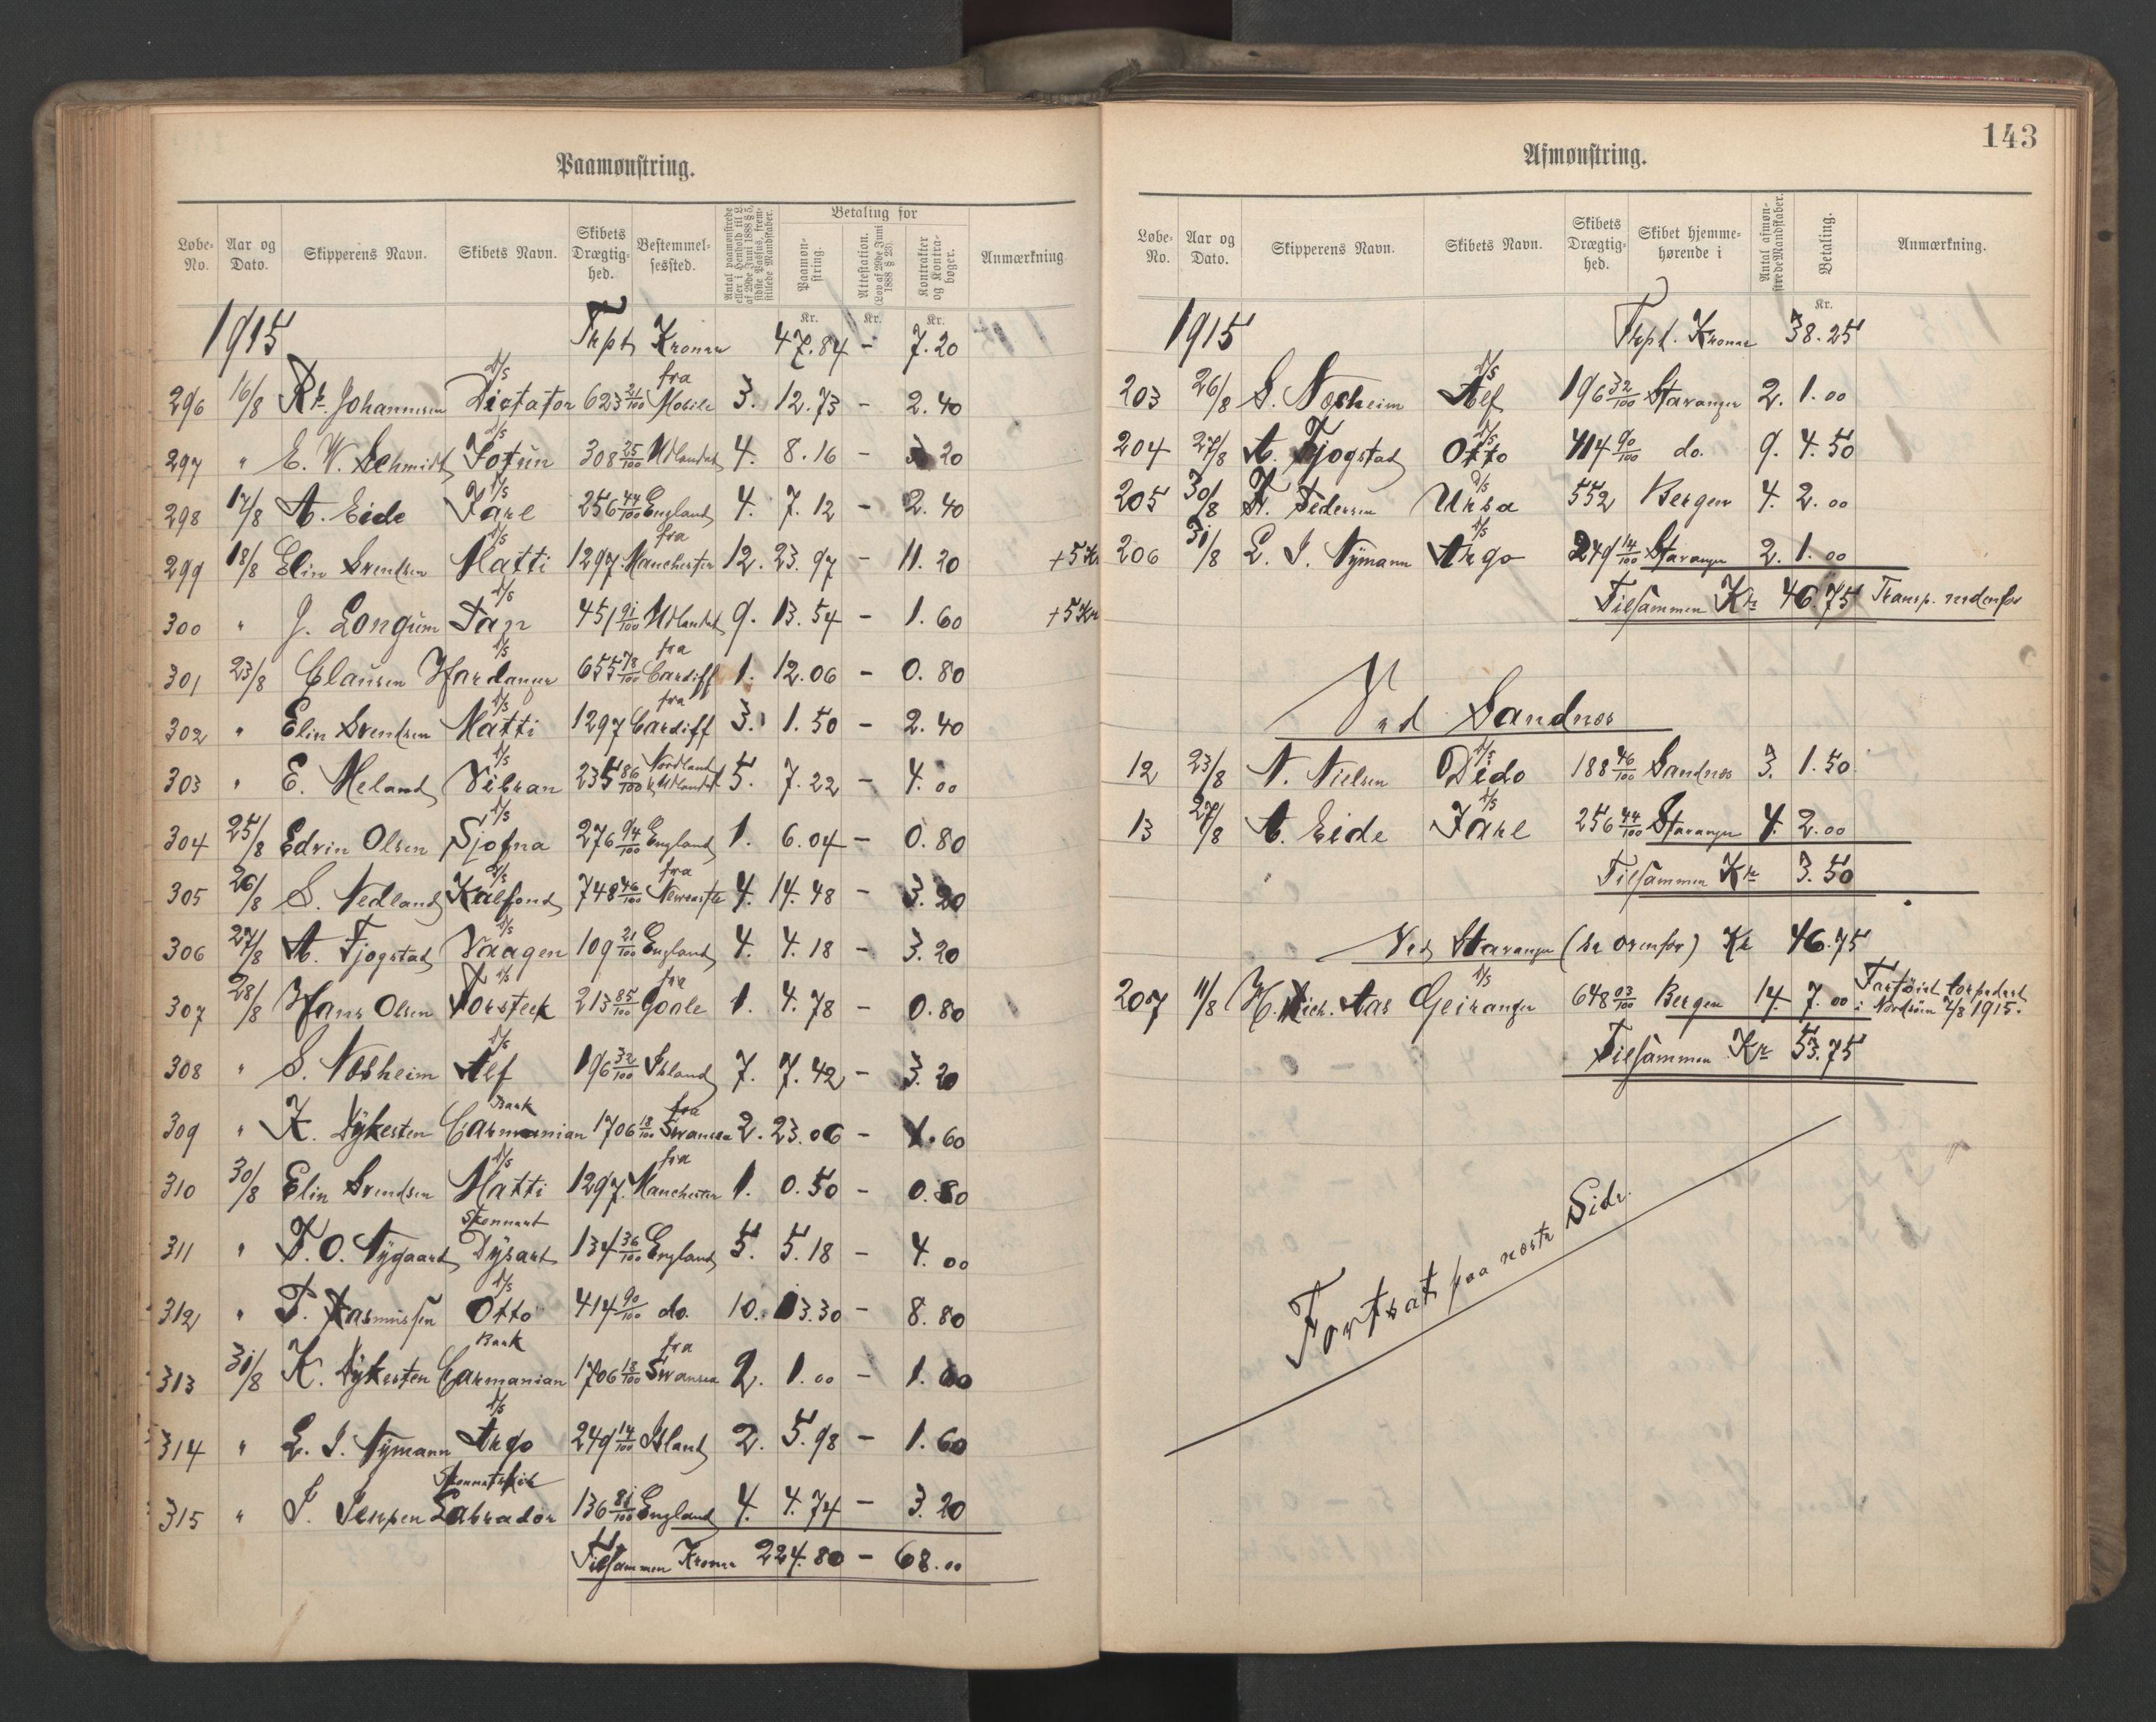 Paamønstring.
Løbe-No. Aar og Dato. Skipperens Navn. Skibets Navn. Skibets Drægtig-hed. Bestemmel-sessted. Antal paamønstrede eller i Henhold til L. af 29de Juni 1888 § 5, sidste Passus, frem-stillede Mandskaber. Betaling for Paamøn-string. Attestation. (Lov af 29de Juni 1888 § 23). Kontrakter og Kontra-bøger. Anmærkning
Kr. Kr. Kr.
1915 Trpt. Kroner 47.84 - 7.20
296 16/8 Kr. Johannesen D/S Dictator 623 21/100 fra Mobile 3. 12.73 - 2.40
297 " E. W. Schmidt D/S Jotun 308 25/100 Udlandet 4. 8.16 - 20
298 17/8 A. Eide D/S Jarl 256 44/100 England 4. 7.12 - 2.40
299 18/8 Elin Svendsen D/S Matti 1297. fra Manchester 12. 23.97 - 11.20 +5 Kr
300 " J. Longum D/S Jan 451 91/100 Udlandet 9. 13.54 - 1.60 +5 Kr
301 23/8 Clausen D/S Hardanger 655 78/100 fra Cardiff 1. 12.06 - 0.80
302 " Elin Svendsen D/S Matti 1297 fra Cardiff 3. 1.50 - 2.40
303 " E. Meland D/S Vibran 235 86/100 Nordland & Udlandet 5. 7.22 - 4.00
304 25/8 Edvin Olsen D/S Sjofna 276 94/100 England 1. 6.04 - 0.80
305 26/8 S. Nedland D/S Kalfond 748 46/100 fra Newcastle 4. 14.48 - 3.20
306 27/8 A. Fjogstad D/S Vaagen 109 21/100 England 4. 4.18 - 3.20
307 28/8 Hans Olsen D/S Torsteck 213 85/100 fra Goole 1. 4.78 - 0.80
308 " S. Nosheim D/S Alf 196 32/100 Island 7. 7.42 - 3.20
309 " K. Dykesten Bark Carmanian 1706 18/100 fra Swansea 2. 23.06 - 1.60
310 30/8 Elin Svendsen D/S Matti 1297. fra Manchester 1. 0.50 - 0.80
311 " T. O. Nygaard Skonnart Dysart 134 36/100 England 5. 5.18 - 4.00
312 " T. Rasmussen D/S Otto 414 90/100 do. 10. 13.30 - 8.80
313 31/8 K. Dykesten Bark Carmanian 1706 18/100 fra Swansea 2. 1.00 - 1.60
314 " E. J. Nymann D/S Argo 249 14/100 Island 2. 5.98 - 1.60
315 " J. Jensen Labrador 136 81/100 England 4. 4.74 - 3.20
Tilsammen Kroner 224.80 - 68.00
143
Afmønstring.
Løbe-No. Aar og Dato. Skipperens Navn. Skibets Navn. Skibets Drægtig-hed. Skibet hjemme-hørende i Antal afmøn-strede Mandskaber. Betaling. Anmærkning.
Kr.
1915 Trpt. Kroner 38.25
203 26/8 S. Nosheim D/S Alf 196 32/100 Stavanger 2. 1.00
204 27/8 A. Fjogstad D/S Otto 414 90/100 do. 9. 4.50
205 30/8 Fr. Pedersen D/S Ursa 552 Bergen 4. 2.00
206 31/8 E. J. Nymann D/S Argo 249 14/100 Stavanger 2. 1.00
Tilsammen Kr 46.75 Transp. nedenfor
Ved Sandnes
12 23/8 N. Nielsen D/S Dido 188 46/100 Sandnes 3. 1.50
13 27/8 A. Eide D/S Jarl 256 44/100 Stavanger 4. 2.00
Tilsammen Kr 3.50
Ved Stavanger (se ovenfor) Kr 46.75
207 11/8 H. Mich. Aas D/S Geiranger 648 03/100 Bergen 14. 7.00 Fartöiet torpedert i Nordsöen 7/8 1915.
Tilsammen Kr 53.75
Fortsat paa næste Side.